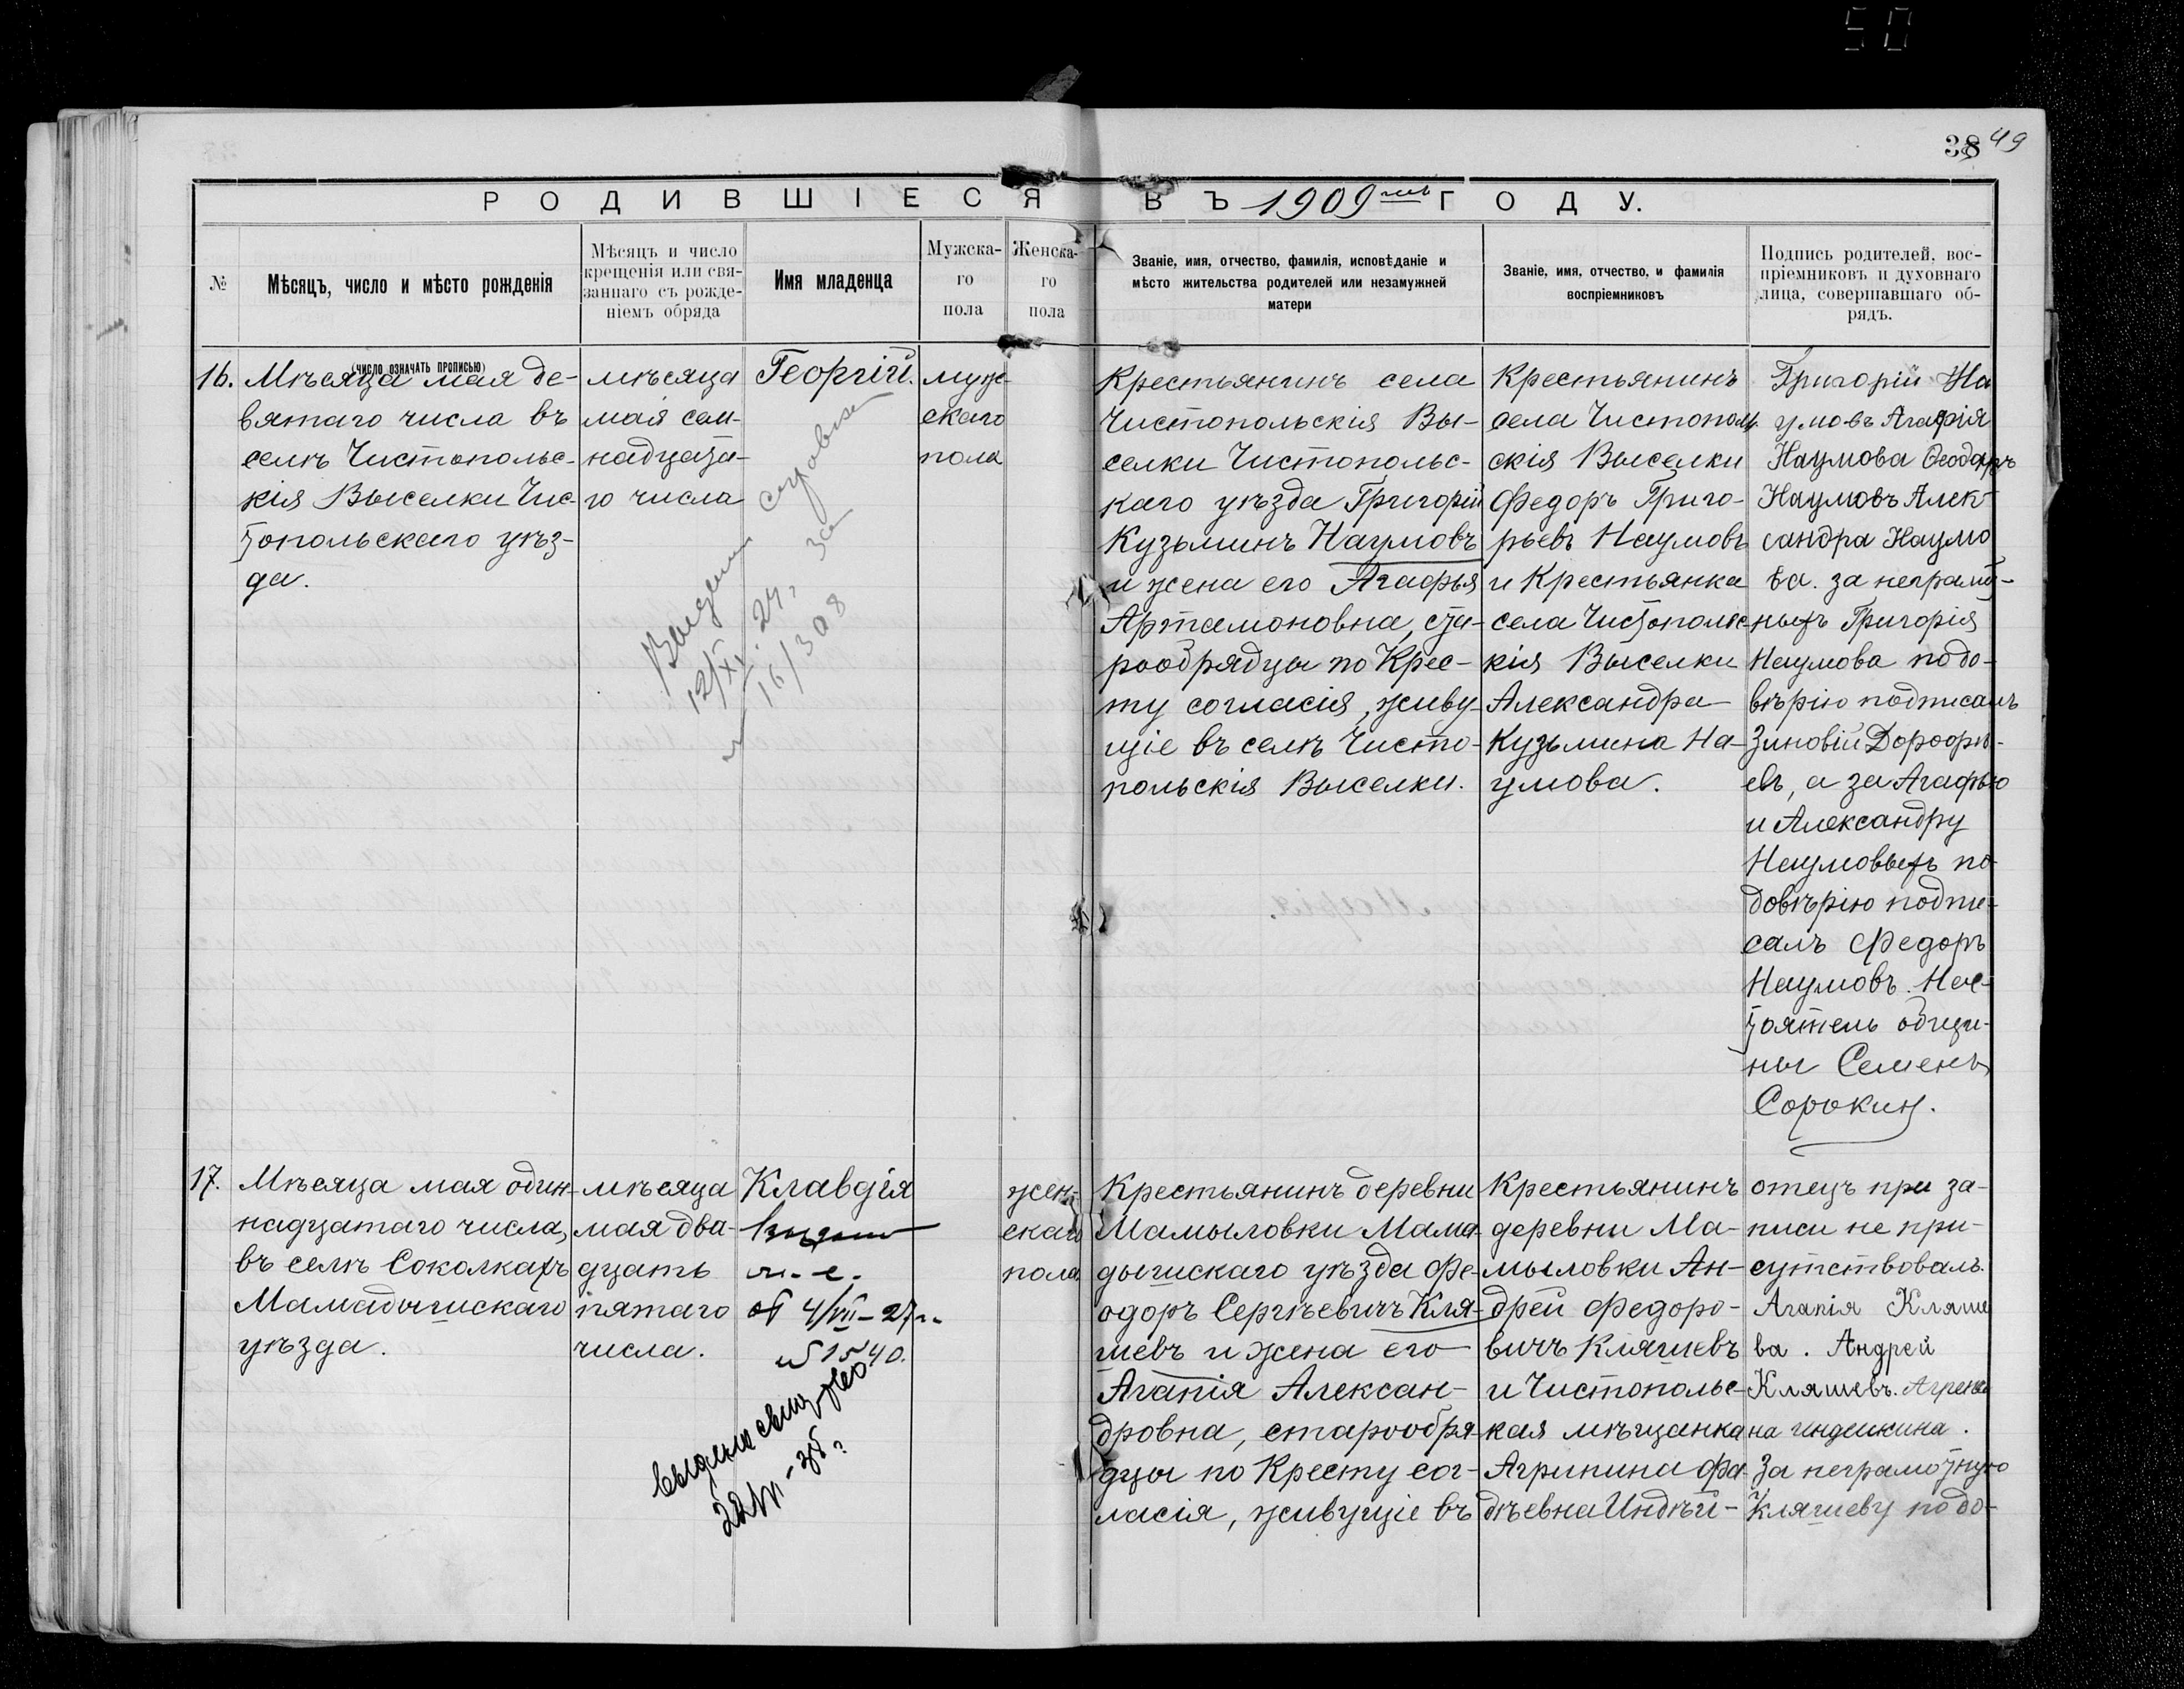 50
38 49
РОДИВШІЕСЯ ВЪ 1909 мъ ГОДУ.
№
Мѣсяцъ, число и мѣсто рожденія
(число означать прописью)
Мѣсяцъ и число
крещенія или свя-
заннаго съ рожде-
ніемъ обряда
Имя младенца
Мужска-
го
пола
Женска-
го
пола
Званіе, имя, отчество, фамилія, исповѣданіе и
мѣсто жительства родителей или незамужней
матери
Званіе, имя, отчество, и фамилія
воспріемниковъ
Подпись родителей, вос-
пріемниковъ и духовнаго
лица, совершавшаго об-
рядъ.
16.
Мѣсяца мая де-
вятаго числа въ
селѣ Чистопольс-
кія Выселки Чис-
топольскаго уѣз-
да.
мѣсяца
мая сем-
надцата-
го числа
Георгій.
12/XI. 27, за
16/308
муж-
скаго
пола
Крестьянинъ села
Чистопольскія Вы-
селки Чистопольс-
каго уѣзда Григорій
Кузьминъ Наумовъ
и жена его Агафья
Артамоновна, ста-
рообрядцы по Крес-
ту согласія, живу-
щіе въ селѣ Чисто-
польскія Выселки.
Крестьянинъ
села Чистополь-
скія Выселки
Федоръ Григо-
рьевъ Наумовъ
и Крестьянка
села Чистопольс-
кія Выселки
Александра
Кузьмина На-
умова.
Григорій На
умовъ Агафія
Наумова Ѳеодоръ
Наумовъ Алек-
сандра Наумо
ва. за неграмот-
ныхъ Григорія
Наумова по до-
вѣрію подписалъ
Зиновій Дорофѣ-
евъ, а за Агафью
и Александру
Наумовыхъ по
довѣрію подпи-
салъ Федоръ
Наумовъ. Нас-
тоятель общи-
ны Семенъ
Сорокин.
17.
Мѣсяца мая один-
надцатаго числа,
въ селѣ Соколкахъ
Мамадышскаго
уѣзда.
мѣсяца
мая два-
дцать
пятаго
числа.
Клавдія
от 4/VII-27 г.
№ 1540.
жен-
скаго
пола
Крестьянинъ деревни
Мамыловки Мама-
дышскаго уѣзда Фе-
одоръ Сергѣевичъ Кля-
шевъ и жена его
Агапія Алексан-
дровна, старообря-
дцы по Кресту сог-
ласія, живущіе въ
Крестьянинъ
деревни Ма-
мыловки Ан-
дрей Федоро-
вичъ Кляшевъ
и Чистопольс-
кая мѣщанка
Агрипина Фа-
дѣевна Индѣй-
отецъ при за-
писи не при-
сутствовалъ.
Агапія Кляше
ва. Андрей
Кляшевъ. Агрепи
на индейкина.
За неграмотную
Кляшеву по до-